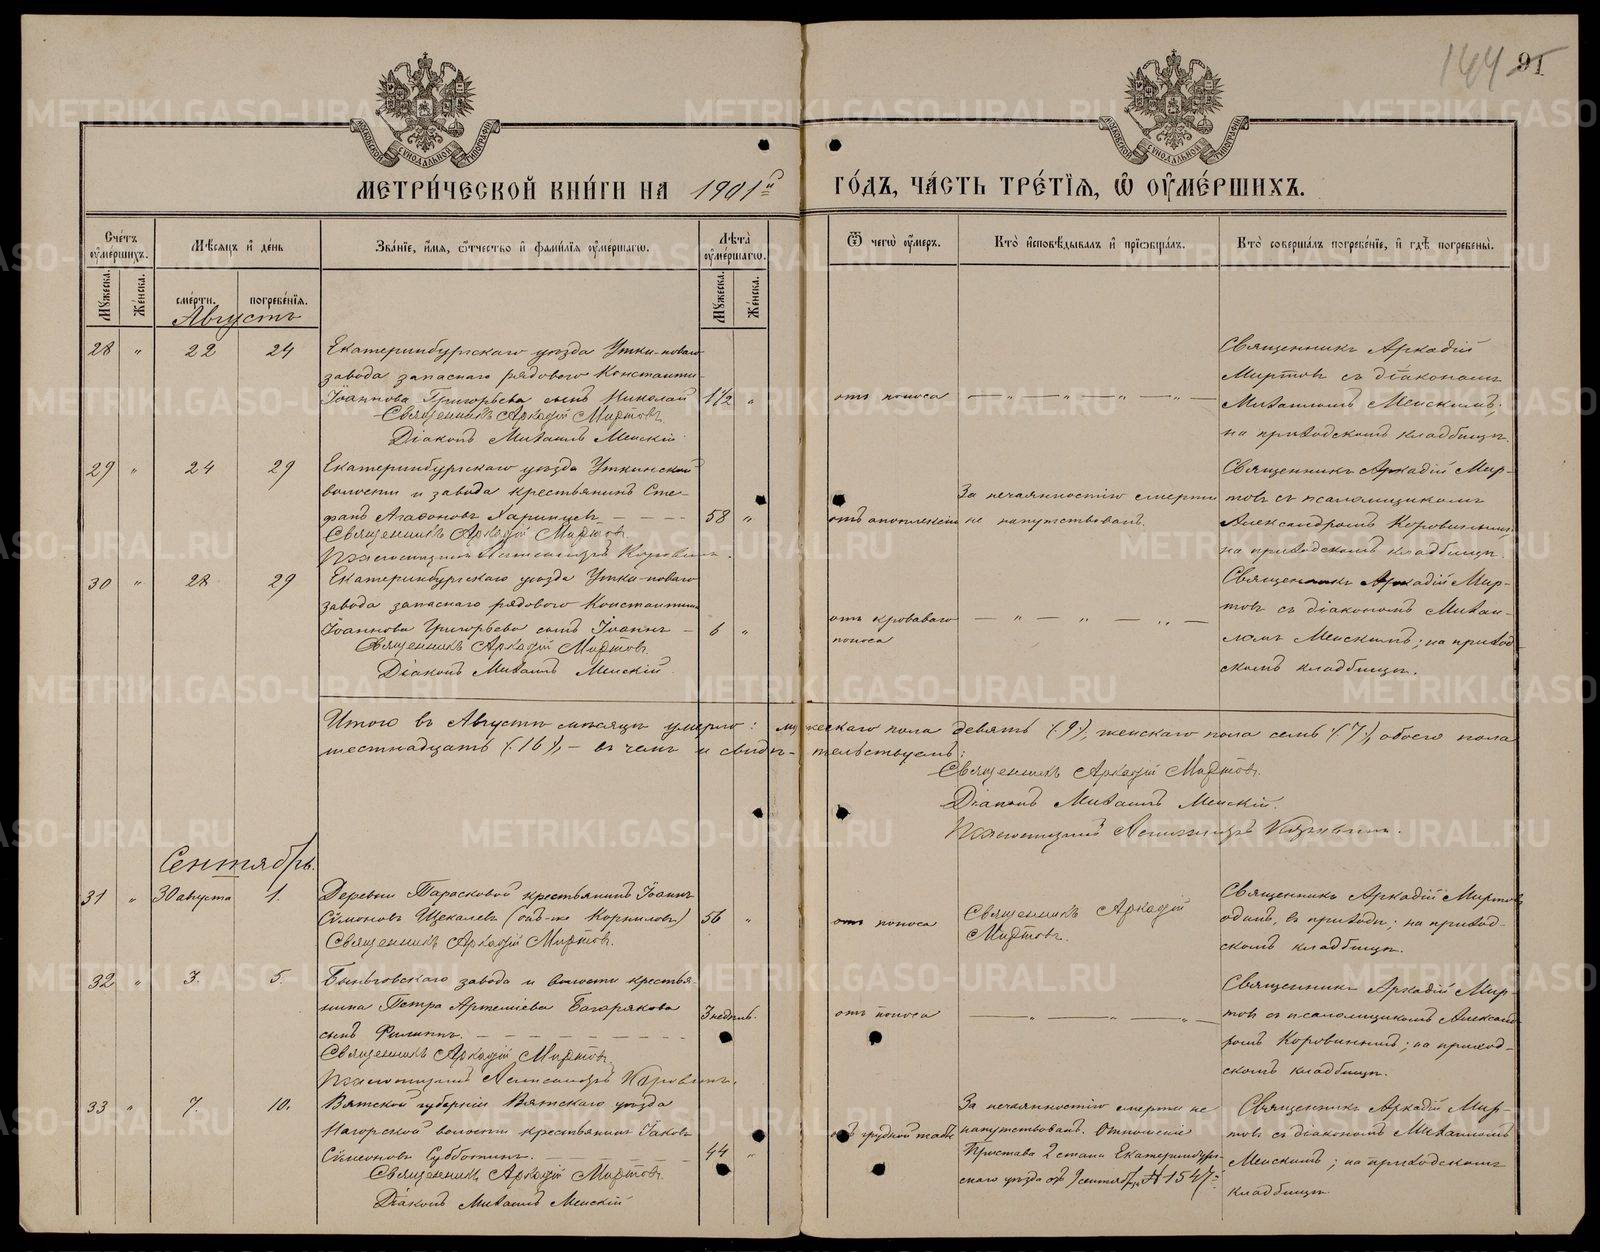 144 91
МОСКОВСКОЙ СѴНОДАЛЬНОЙ ТИПОГРАФІИ
МОСКОВСКОЙ СѴНОДАЛЬНОЙ ТИПОГРАФІИ
МЕТРИ́ЧЕСКОЙ КНИ́ГИ НА 1901й ГО́ДЪ, ЧА́СТЬ ТРЕ́ТІѦ, Ѡ҆ ОУ҆МЕ́РШИХЪ.
Сче́тъ оу҆ме́ршихъ.
Мꙋ́жеска.
Же́нска.
Мѣ́сѧцъ и҆ де́нь
сме́рти.
погребе́нїѧ.
Зва́нїе, и҆́мѧ, ѻ҆́тчество и҆ фами́лїѧ оу҆ме́ршагѡ.
Лѣ́та оу҆ме́ршагѡ.
Мꙋ́жеска.
Же́нска.
Ѿ чегѡ̀ оу҆́меръ.
Кто̀ и҆сповѣ́дывалъ и҆ прїѡбща́лъ.
Кто̀ соверша́лъ погребе́нїе, и҆ гдѣ̀ погребены̀.
Августъ
28 " 22 24
Екатеринбургскаго уѣзда Утки-новаго
завода запаснаго рядового Константи-
Іоаннова Григорьева сынъ Николай 1½ "
Священникъ Аркадій Миртовъ.
Діаконъ Михаилъ Менскій.
отъ поноса
— " — " — " —
Священникъ Аркадій
Миртовъ съ діакономъ
Михаиломъ Менскимъ;
на приходскомъ кладбищѣ.
29 " 24 29
Екатеринбургскаго уѣзда Уткинской
волости и завода крестьянинъ Сте-
фанъ Агафоновъ Харинцевъ 58 "
Священникъ Аркадій Миртовъ.
Псаломщикъ Александръ Коровинъ.
отъ апоплексіи
За нечаянностію смерти
не напутствованъ.
Священникъ Аркадій Мир-
товъ съ псаломщикомъ
Александромъ Коровинымъ;
на приходскомъ кладбищѣ.
30 " 28 29
Екатеринбургскаго уѣзда Утки-новаго
завода запаснаго рядового Константина
Іоаннова Григорьева сынъ Іоаннъ — 6 "
Священникъ Аркадій Миртовъ.
Діаконъ Михаилъ Менскій.
отъ кроваваго
поноса
— " — " — " —
Священникъ Аркадій Мир-
товъ съ діакономъ Михаи-
ломъ Менскимъ; на приход-
скомъ кладбищѣ.
Итого въ Августѣ мѣсяцѣ умерло: мужескаго пола девять (9), женскаго пола семь (7), обоего пола
шестнадцать (16), — въ чемъ и свидѣтельствуемъ:
Священникъ Аркадій Миртовъ.
Діаконъ Михаилъ Менскій.
Псаломщикъ Александръ Коровинъ.
Сентябрь.
31 " 30 августа 1.
Деревни Тарасковой крестьянинъ Іоаннъ
Сѵмеоновъ Щекалевъ (онъ-же Корниловъ) 56 "
Священникъ Аркадій Миртовъ.
отъ поноса
Священникъ Аркадій
Миртовъ.
Священникъ Аркадій Миртовъ
одинъ, въ приходѣ; на приход-
скомъ кладбищѣ.
32 " 3. 5.
Быньговскаго завода и волости крестья-
нина Петра Артеміева Багарякова
сынъ Филиппъ. 3 недѣль.
Священникъ Аркадій Миртовъ.
Псаломщикъ Александръ Коровинъ.
отъ поноса
— " — " — " —
Священникъ Аркадій Мир-
товъ съ псаломщикомъ Александ-
ромъ Коровинымъ; на приход-
скомъ кладбищѣ.
33 " 7. 10.
Вятской губерніи Вятскаго уѣзда
Нагорской волости крестьянинъ Іаковъ
Сѵмеоновъ Субботинъ. 44 "
Священникъ Аркадій Миртовъ.
Діаконъ Михаилъ Менскій
отъ грудной жабы
За нечаянностію смерти не
напутствованъ. Отношеніе
Пристава 2 стана Екатеринбург-
скаго уѣзда отъ 9 сентября № 1547.
Священникъ Аркадій Мир-
товъ съ діакономъ Михаиломъ
Менскимъ; на приходскомъ
кладбищѣ.
METRIKI.GASO-URAL.RU